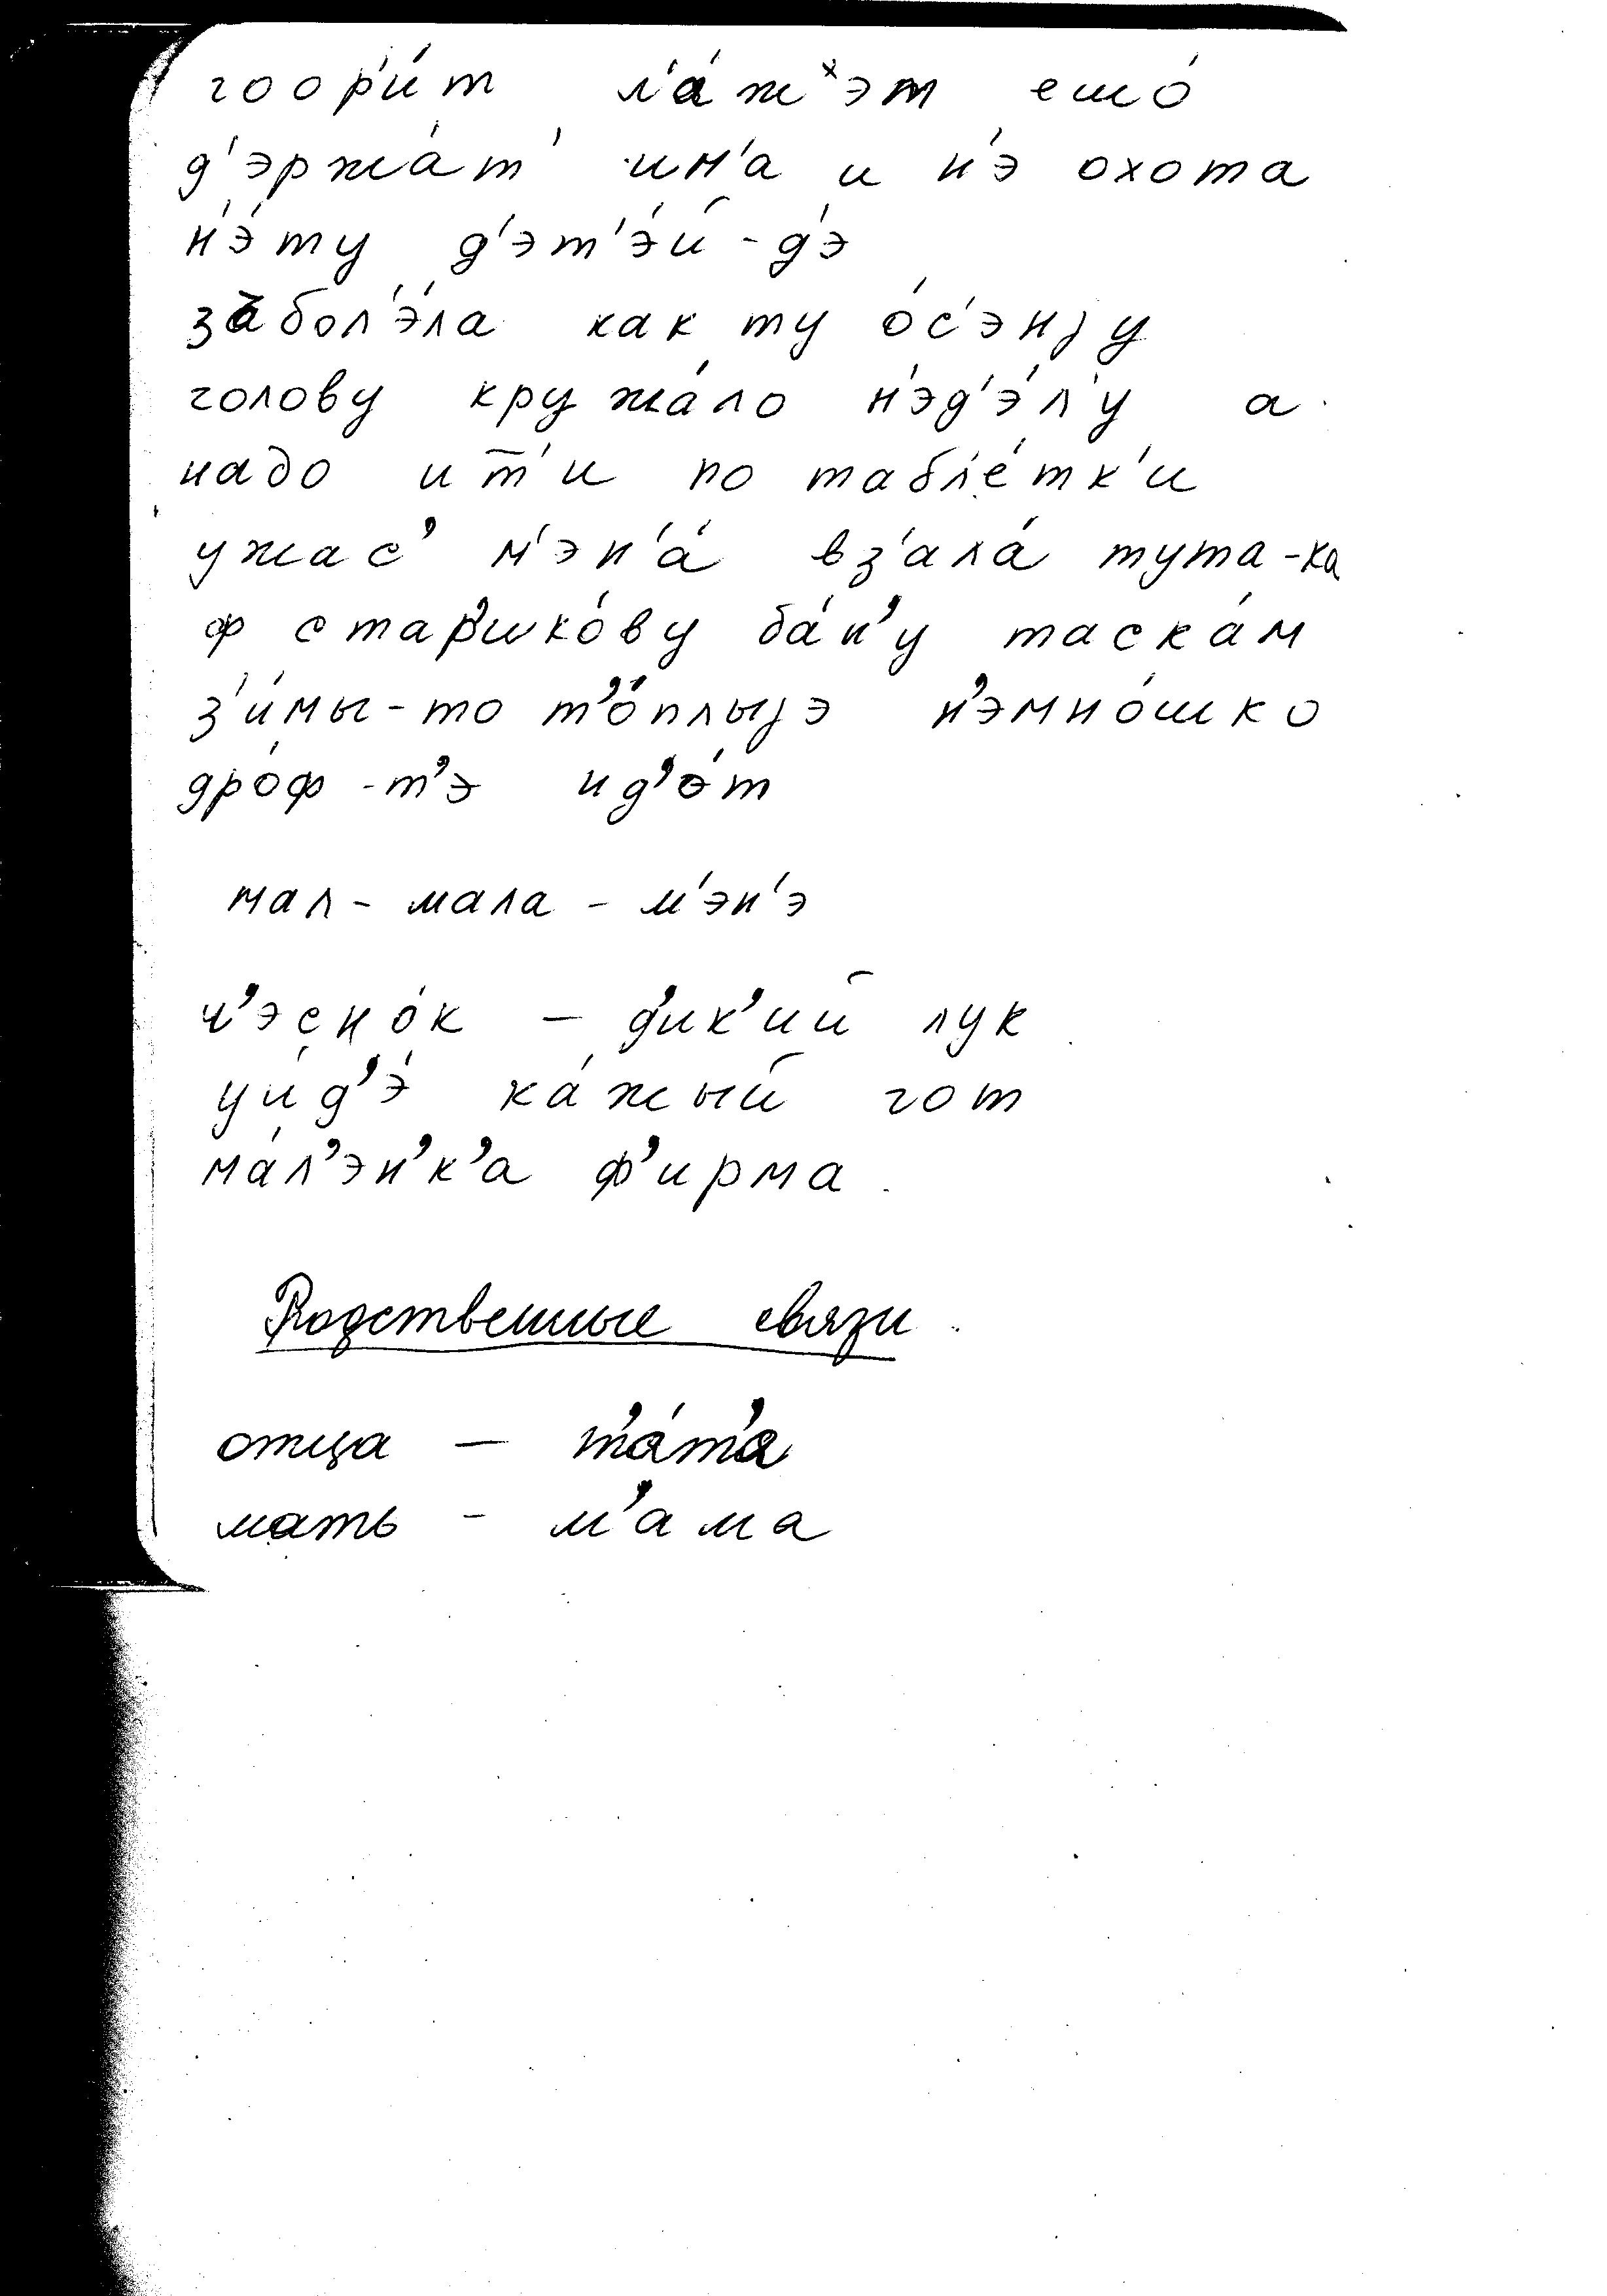 гоор'и́т л'а́жˣэт ешо́
д'эржа́т' ин'а и н'э охота
н'э́ту д'эт'э́й-д'э
забол'э́ла как ту о́с'энjу
голову кружа́ло н'эд'э́л'у а
надо ит̄'и по табл'е́тк'и
ужас' м'эн'а́ вз'ала́ тута-ка
ф стар'ико́ву ба́н'у таска́м
з'и́мы-то т'о́плыjэ н'эмно́шко
дро́ф-т'э ид'о́т
мал - мала - м'эн'э
ч'эсно́к – д'ик'ий лук
уйд'э́ ка́жый гот
ма́л'эн'к'а ф'ирма
Родственные связи.
отца – т'а́т'а
мать - м'ама